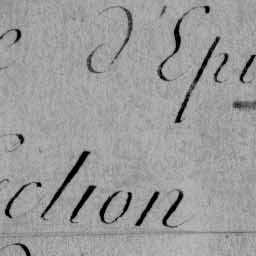 e d'Epi
ection